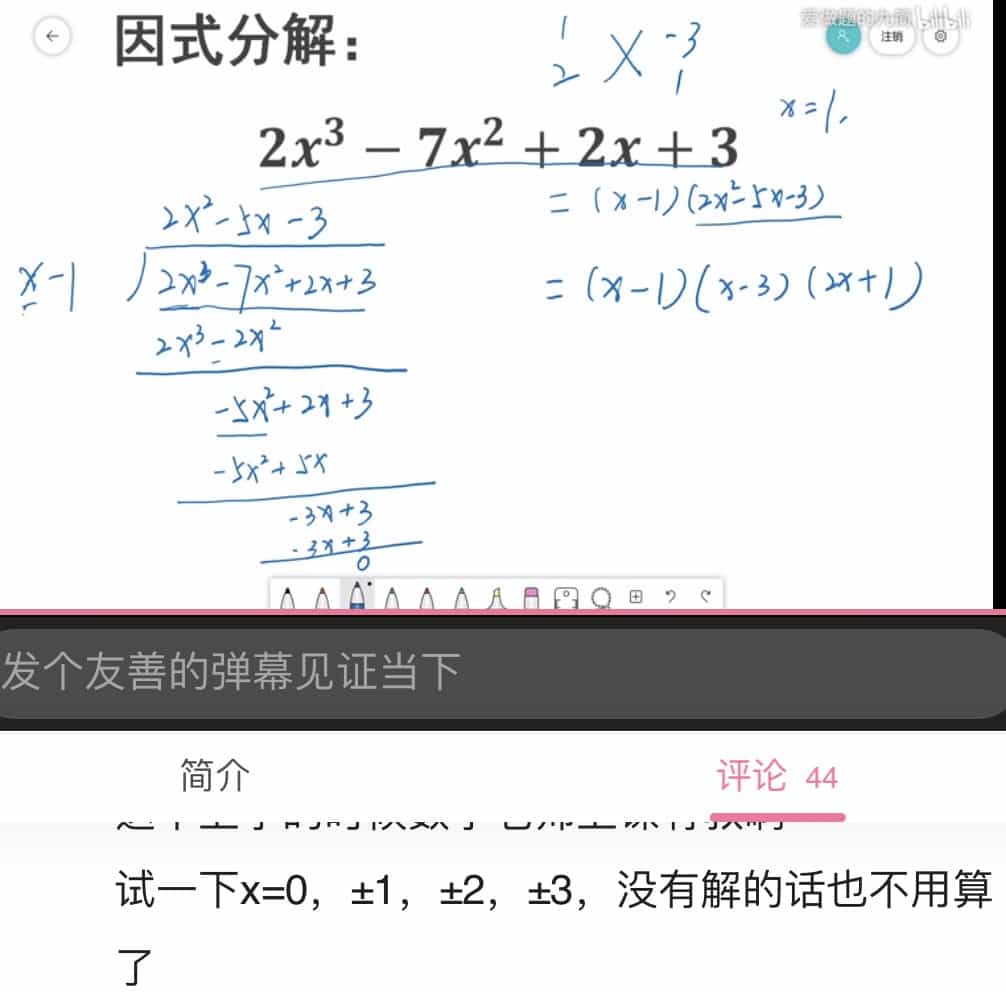 爱做题的九筒 bilibili
因式分解：
注销
1 -3
2 X 1
x=1.
2x³ − 7x² + 2x + 3
= (x-1)(2x²-5x-3)
= (x-1)(x-3)(2x+1)
2x²-5x-3
x-1 2x³-7x²+2x+3
2x³-2x²
-5x²+2x+3
-5x²+5x
-3x+3
-3x+3
0
发个友善的弹幕见证当下
简介 评论 44
试一下x=0，±1，±2，±3，没有解的话也不用算
了